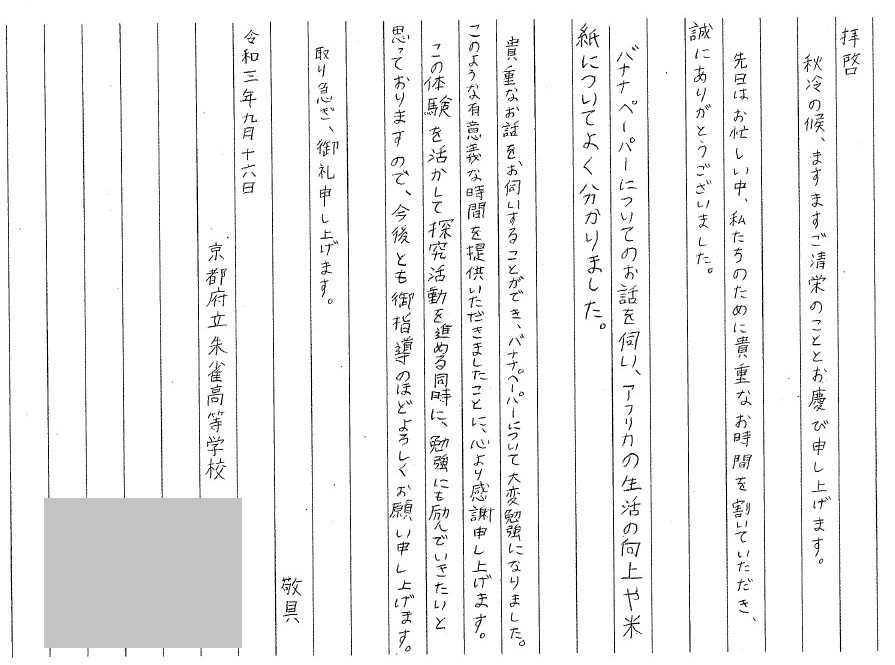 拝啓
秋冷の候、ますますご清栄のこととお慶び申し上げます。
先日はお忙しい中、私たちのために貴重なお時間を割いていただき、
誠にありがとうございました。
バナナペーパーについてのお話を伺い、アフリカの生活の向上や米
紙についてよく分かりました。
貴重なお話を、お伺いすることができ、バナナペーパーについて大変勉強になりました。
このような有意義な時間を提供いただきましたことに、心より感謝申し上げます。
この体験を活かして探究活動を進める同時に、勉強にも励んでいきたいと
思っておりますので、今後とも御指導のほどよろしくお願い申し上げます。
取り急ぎ、御礼申し上げます。
敬具
令和三年九月十六日
京都府立朱雀高等学校